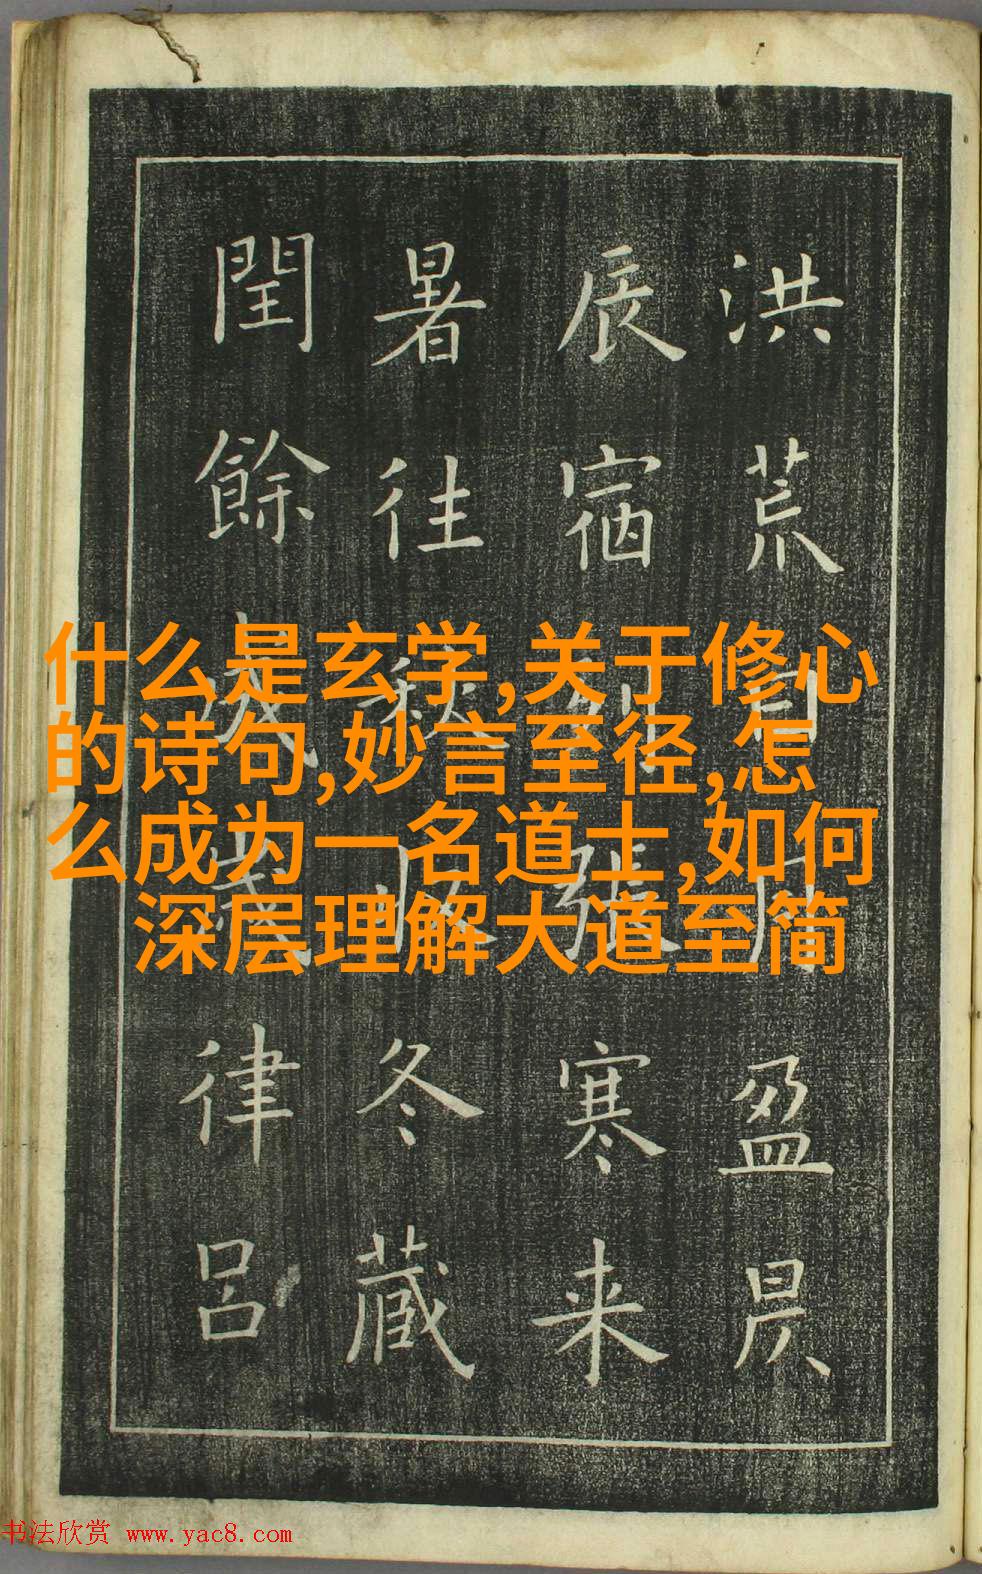 洪荒日月盈昃
辰宿列張寒来
暑往秋收冬藏
閏餘成歲律吕
什么是玄学,关于修心
的诗句,妙言至径,怎
么成为一名道士,如何
深层理解大道至简
书法欣赏 www.yac8.com